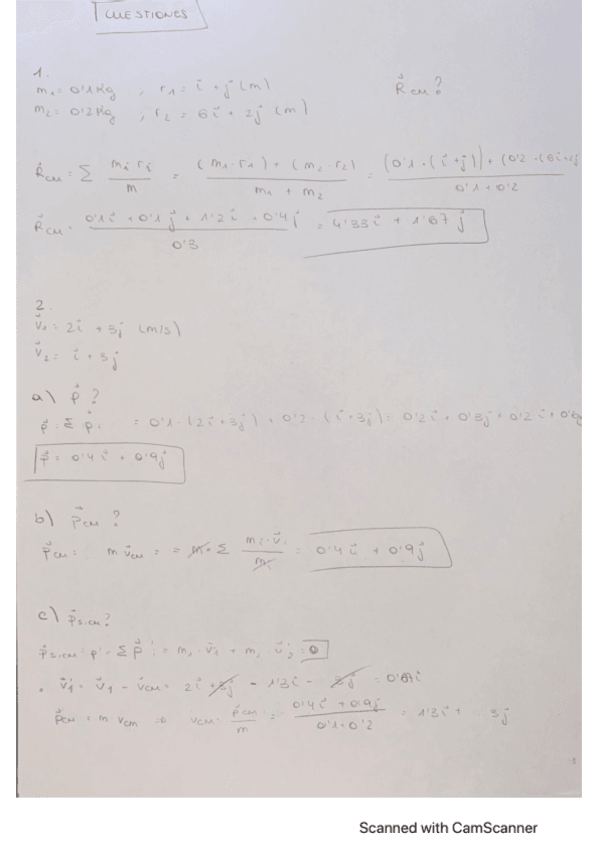 CUESTIONES
1.
m₁= 0'1 Kg , r₁ = i + j (m) R⃗cм ?
m₂= 0'2 Kg , r₂ = 6i + 2j (m)
R⃗cм = Σ mᵢ·rᵢ / m = (m₁·r₁) + (m₂·r₂) / m₁ + m₂ = (0'1·(i+j)) + (0'2·(6i+ / 0'1+0'2
R⃗cм = 0'1i + 0'1j + 1'2i + 0'4j / 0'3 = 4'33i + 1'67j
2.
v⃗₁= 2i + 3j (m/s)
v⃗₂= i + 3j
a) p⃗ ?
p⃗ = Σ p⃗ᵢ = 0'1·(2i+3j) + 0'2·(i+3j) = 0'2i + 0'3j + 0'2i +
p⃗ = 0'4i + 0'9j
b) p⃗cм ?
p⃗cм = m v⃗cм = = m· Σ mᵢ·v⃗ᵢ / m = 0'4i + 0'9j
c) p⃗s.cм ?
p⃗s.cм = p' = Σ p⃗' = m₁·v⃗₁' + m₂·v⃗₂' = 0
· v⃗₁' = v⃗₁ - v⃗cм = 2i + 3j - 1'3i - 3j = 0'67i
p⃗cм = m·vcм => vcм = p⃗cм / m = 0'4i + 0'9j / 0'1+0'2 = 1'3i + 3j
Scanned with CamScanner